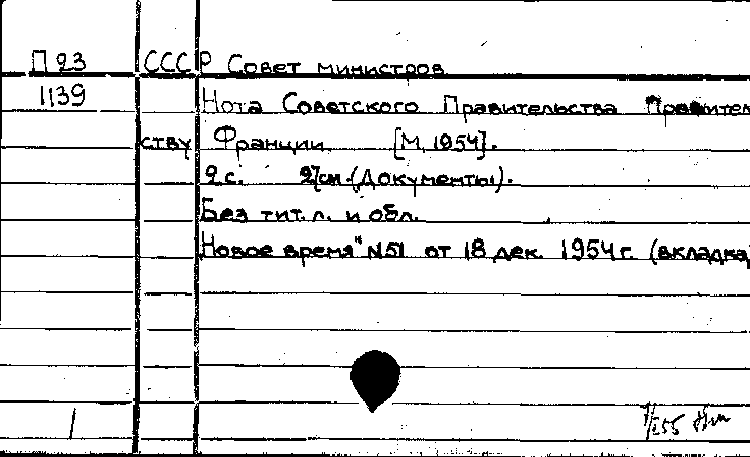 П 23 СССР Совет министров
1139 Нота Советского Правительства Правител
ству Франции [М, 1954].
2 с. 27см. (Документы).
Без тит. л. и обл.
Новое время" №51 от 18 дек. 1954 г. (вкладка